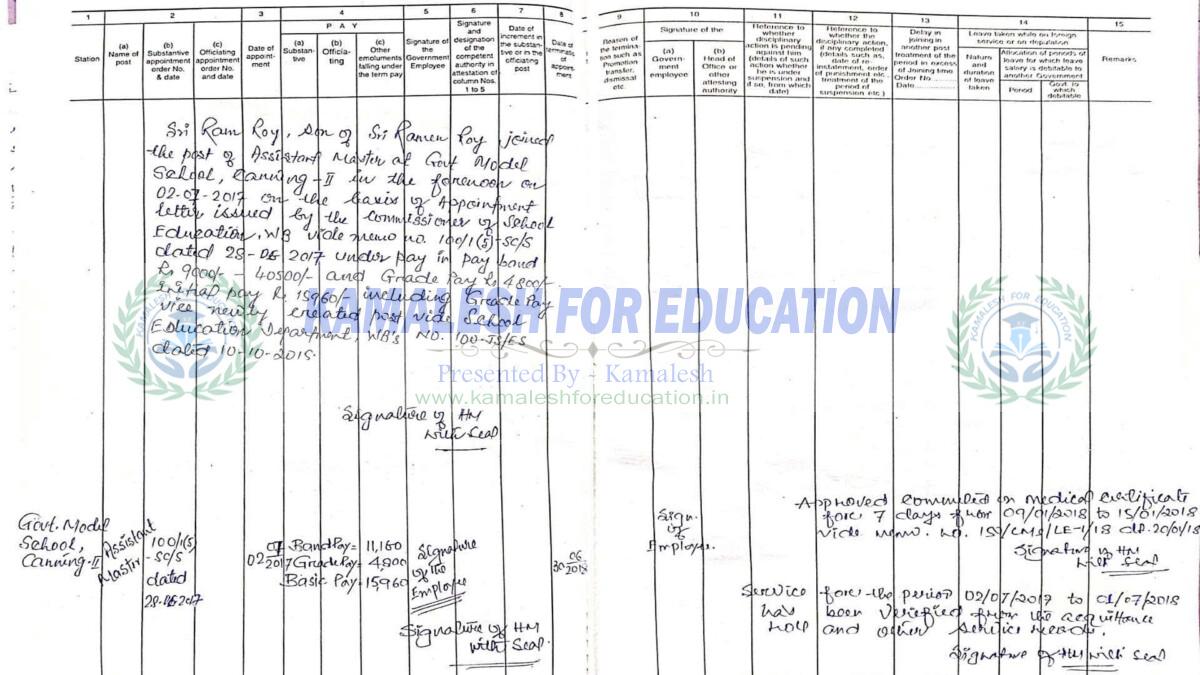 1
2
3
4
5
6
7
8
9
10
11
12
13
14
15
Station
(a) Name of post
(b) Substantive appointment order No. & date
(c) Officiating appointment order No. and date
Date of appoint-ment
PAY
(a) Substan-tive
(b) Officia-ting
(c) Other emoluments falling under the term pay
Signature of the Government Employee
Signature and designation of the competent authority in attestation of column Nos. 1 to 5
Date of increment in the substan-tive or in the officiating post
Date of
Reason of the termina-tion such as Promotion transfer, dismissal etc.
Signature of the
(a) Govern-ment employee
(b) Head of Office or other attesting authority
Reference to whether disciplinary action is pending against him (details of such action whether he is under suspension and if so, from which date)
Reference to whether the disciplinary action, if any completed (details such as, date of re-instalement, order of punishment etc. treatment of the period of suspension etc)
Delay in joining in another post treatment of the period in excess of Joining time Order No. Date
Leave taken while on foreign service or on deputation
Nature and duration of leave taken
Allocation of periods of leave for which leave salary is debitable to another Government
Period
Govt. to which debitable
Remarks
Sri Ram Roy, son of Sri Ramen Roy, joined
the post of Assistant Master at Govt Model
School, Canning-II in the forenoon on
02-07-2017 on the basis of Appointment
letter issued by the Commissioner of School
Education, WB vide memo no. 100/1(5)-SC/S
dated 28-06 2017 under pay in pay band
Rs 9000/- - 40500/- and Grade Pay Rs 4800/-
initial pay Rs 15960/- including Grade Pay
vice newly created post vide School
Education Department, WB's NO. 100-JS/ES
dated 10-10-2015.
KAMALESH FOR EDUCATION
KAMALESH FOR EDUCATION
KAMALESH FOR EDUCATION
Presented By - Kamalesh
www.kamaleshforeducation.in
Signature of HM
with Seal
Govt. Model
School,
Canning-II
Assistant
Master
100/1(5)
-SC/S
dated
28-06-2017
02 07
2017
Band Pay= 11,160
Grade Pay= 4,800
Basic Pay= 15,960
Signature
of the
Employee
30 06
2018
Signature of HM
with Seal.
Sign.
of
Employee.
Approved commuted on medical certificate
for 7 days from 09/01/2018 to 15/01/2018
vide memo. no.
Signature of HM
with Seal
Service for the period 02/07/2017 to 01/07/2018
has been verified from the acquittance
roll and other service records.
Signature of HM with Seal